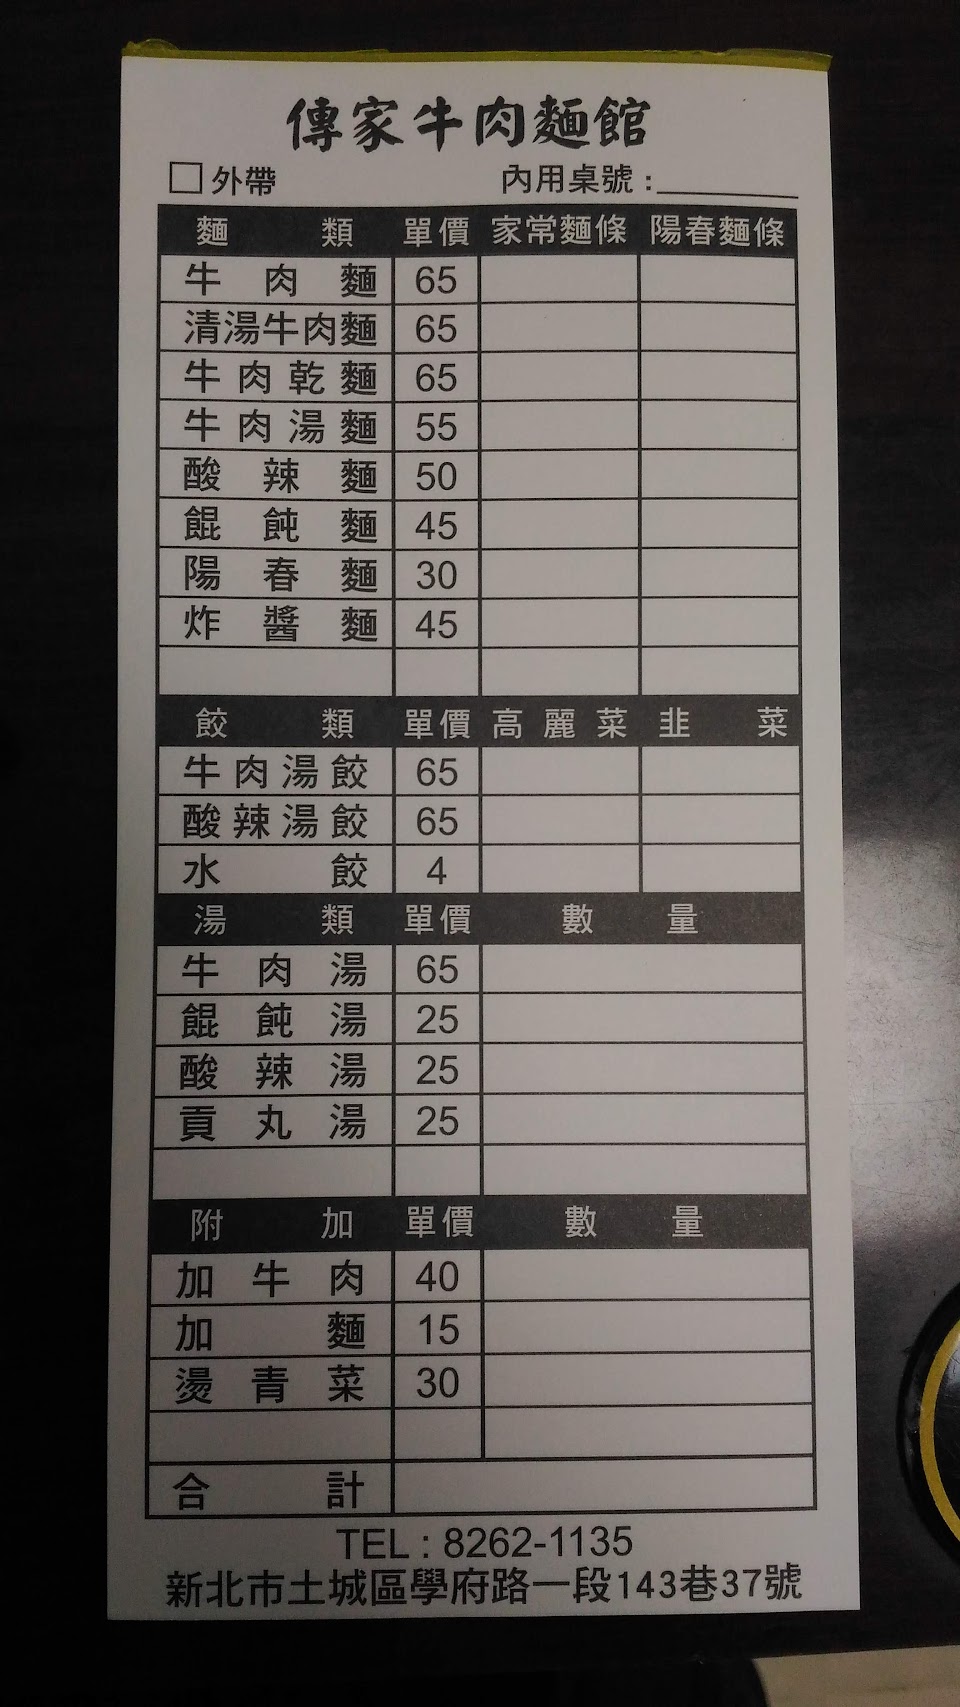 傳家牛肉麵館
□外帶 內用桌號:________
麵類 單價 家常麵條 陽春麵條
牛肉麵 65
清湯牛肉麵 65
牛肉乾麵 65
牛肉湯麵 55
酸辣麵 50
餛飩麵 45
陽春麵 30
炸醬麵 45
餃類 單價 高麗菜 韭菜
牛肉湯餃 65
酸辣湯餃 65
水餃 4
湯類 單價 數量
牛肉湯 65
餛飩湯 25
酸辣湯 25
貢丸湯 25
附加 單價 數量
加牛肉 40
加麵 15
燙青菜 30
合計
TEL : 8262-1135
新北市土城區學府路一段143巷37號